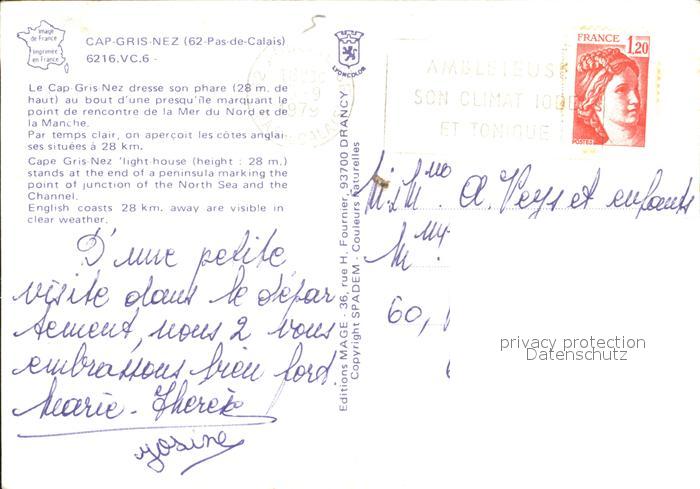 Image
de France
Imprimée
en France
CAP-GRIS-NEZ (62-Pas-de-Calais)
6216.VC.6 -
Le Cap Gris-Nez dresse son phare (28 m. de
haut) au bout d'une presqu'île marquant le
point de rencontre de la Mer du Nord et de
la Manche.
Par temps clair, on aperçoit les côtes anglai-
ses situées à 28 km.
Cape Gris-Nez 'light-house (height : 28 m.)
stands at the end of a peninsula marking the
point of junction of the North Sea and the
Channel.
English coasts 28 km. away are visible in
clear weather.
D'une petite
visite dans le dépar
tement, nous 2 vous
embrassons bien fort.
Marie-Thérèse
yosine
5
LYONCOLOR
Editions MAGE - 36, rue H. Fournier, 93700 DRANCY
Copyright SPADEM - Couleurs Naturelles
1979
AMBLETEUSE
SON CLIMAT IODÉ
ET TONIQUE
FRANCE
1,20
POSTES
A. Veys et enfants
60,
privacy protection
Datenschutz